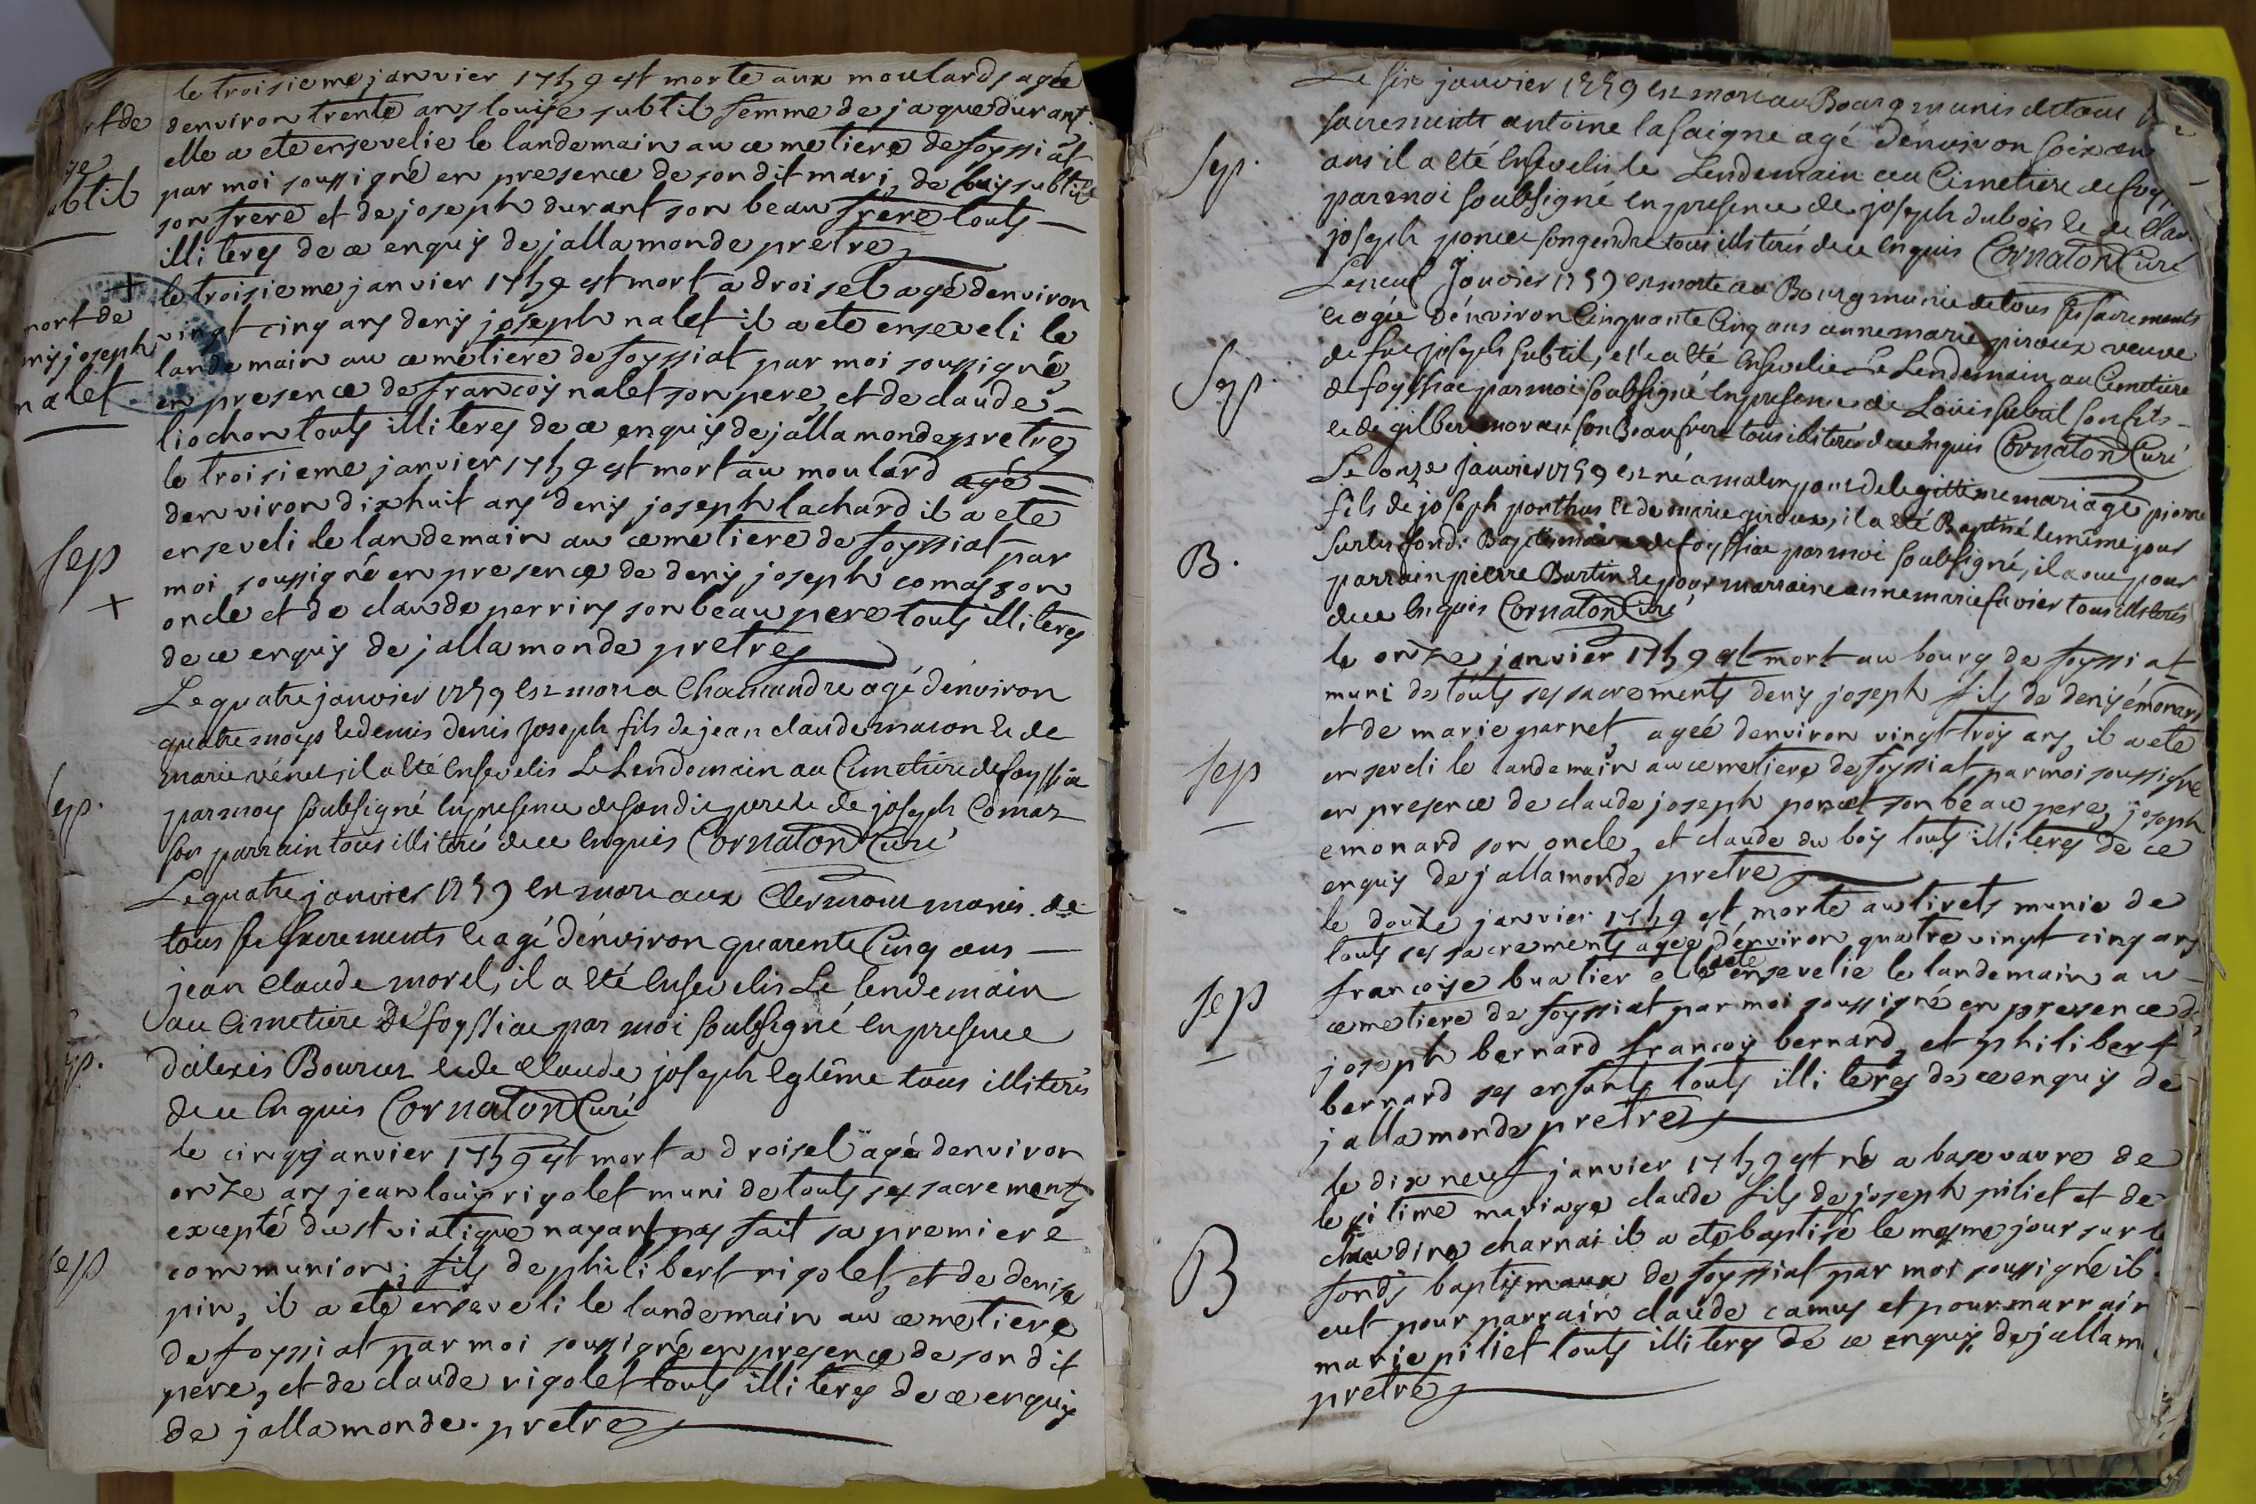 le troisieme janvier 1759 est morte aux moulards agée
denviron trente ans louise subtil femme de jaque durant
elle a ete ensevelie le landemain au cemetiere de foyssiat
par moi soussigné en presence de sondit mari, de louis subtil
son frere et de joseph durant son beau frere touts
illiteres de ce enquis dejallamonde pretre
le troisieme janvier 1759 est mort a droisel agé denviron
vingt cinq ans denis joseph nalet il a ete enseveli le
landemain au cemetiere de foyssiat par moi soussigné
en presence de francois nalet son pere, et de claude
liochon touts illiteres de ce enquis dejallamonde pretre
mort de
joseph
nalet
le troisieme janvier 1759 est mort au moulard agé
denviron dixhuit ans denis joseph lachard il a ete
enseveli le landemain au cemetiere de foyssiat par
moi soussigné en presence de denis joseph comasson
oncle et de claude perrin son beau pere touts illiteres
de ce enquis de jallamonde pretre
sep
Le quatre janvier 1759 est mort a Chamandre agé d'environ
quatre moys et demis denis joseph fils de jean claude macon et de
marie vénet, il a été ensevelis Le Lendemain au Cimetiere de foyssiat
par moy soubsigné en presence de sondit pere et de joseph Comas
son parrain tous illiterés de ce enquis Cornaton Curé
sep.
Le quatre janvier 1759 est mort aux Clermont munis de
tous ses sacrements et agé d'environ quarente Cinq ans
jean Claude morel, il a été ensevelis Le lendemain
au Cimetiere De foyssiat par moi soubsigné en presence
d'alexis Bourcet et de Claude joseph Eglème tous illiterés
de ce enquis Cornaton Curé
le cinq janvier 1759 est mort a droisel agé denviron
onze ans jean louis rigolet muni de touts ses sacrements
excepté du st viatique nayant pas fait sa premiere
communion; fils de philibert rigolet, et de denise
pin, il a ete enseveli le landemain au cemetiere
de foyssiat par moi soussigné en presence de son dit
pere, et de claude rigolet touts illiteres de ce enquis
de jallamonde. pretre
sep
Le six janvier 1759 est mort au Bourg munis de tous
sacrements antoine lasaigne agé d'environ soixan
ans il a été Ensevelis le Lendemain au Cimetiere de foys
par moi soubsigné en presence de joseph dubois et de
joseph poncet son gendre tous illiterés de ce enquis Cornaton Curé
Sep.
Le neuf Janvier 1759 est morte au Bourg munie de tous ses sacrements
et agée d'environ Cinquante Cinq ans anne marie piroux veuve
de fue joseph subtil, elle a été Ensevelie Le Lendemain au Cimetiere
de foyssiat par moi soubsigné en presence de Louis subtil son fils
et de gilbert moreau son Beaufrere tous illiterés de ce enquis Cornaton Curé
Sep.
Le onze Janvier 1759 est né a malmpont de legittime mariage pierre
fils de joseph ponthus et de marie giroux, il a été Baptisé le même jour
sur les fonds Baptismaux de foyssiat par moi soubsigné, il a eu pour
parrain pierre Burtin et pour marraine anne marie favier tous illiterés
de ce enquis Cornaton Curé
B.
le onze janvier 1759 est mort au bourg de foyssiat
muni de touts ses sacrements denis joseph fils de denis émonard
et de marie parnet agée denviron vingt trois ans, il a ete
enseveli le landemain au cemetiere de foyssiat par moi soussigné
en presence de claude joseph poncet son beau pere, joseph
emonard son oncle, et claude du bois touts illiteres de ce
enquis de jallamonde pretre
sep
le douze janvier 1759 est morte au tirets munie de
touts ses sacrements agée d'environ quatre vingt cinq ans
francoise buatier elle a ete ensevelie le landemain au
cemetiere de foyssiat par moi soussigné en presence de
joseph bernard francois bernard, et philibert
bernard ses enfants touts illiteres de ce enquis de
jallamonde pretre
sep
le dix neuf janvier 1759 est né a base vavre de
legitime mariage claude fils de joseph piliet et de
claudine charnai il a ete baptisé le mesme jour sur le
fonds baptismaux de foyssiat par moi soussigné il
eut pour parrain claude camus et pour marrain
marie piliet touts illiteres de ce enquis dejallam
pretre
B